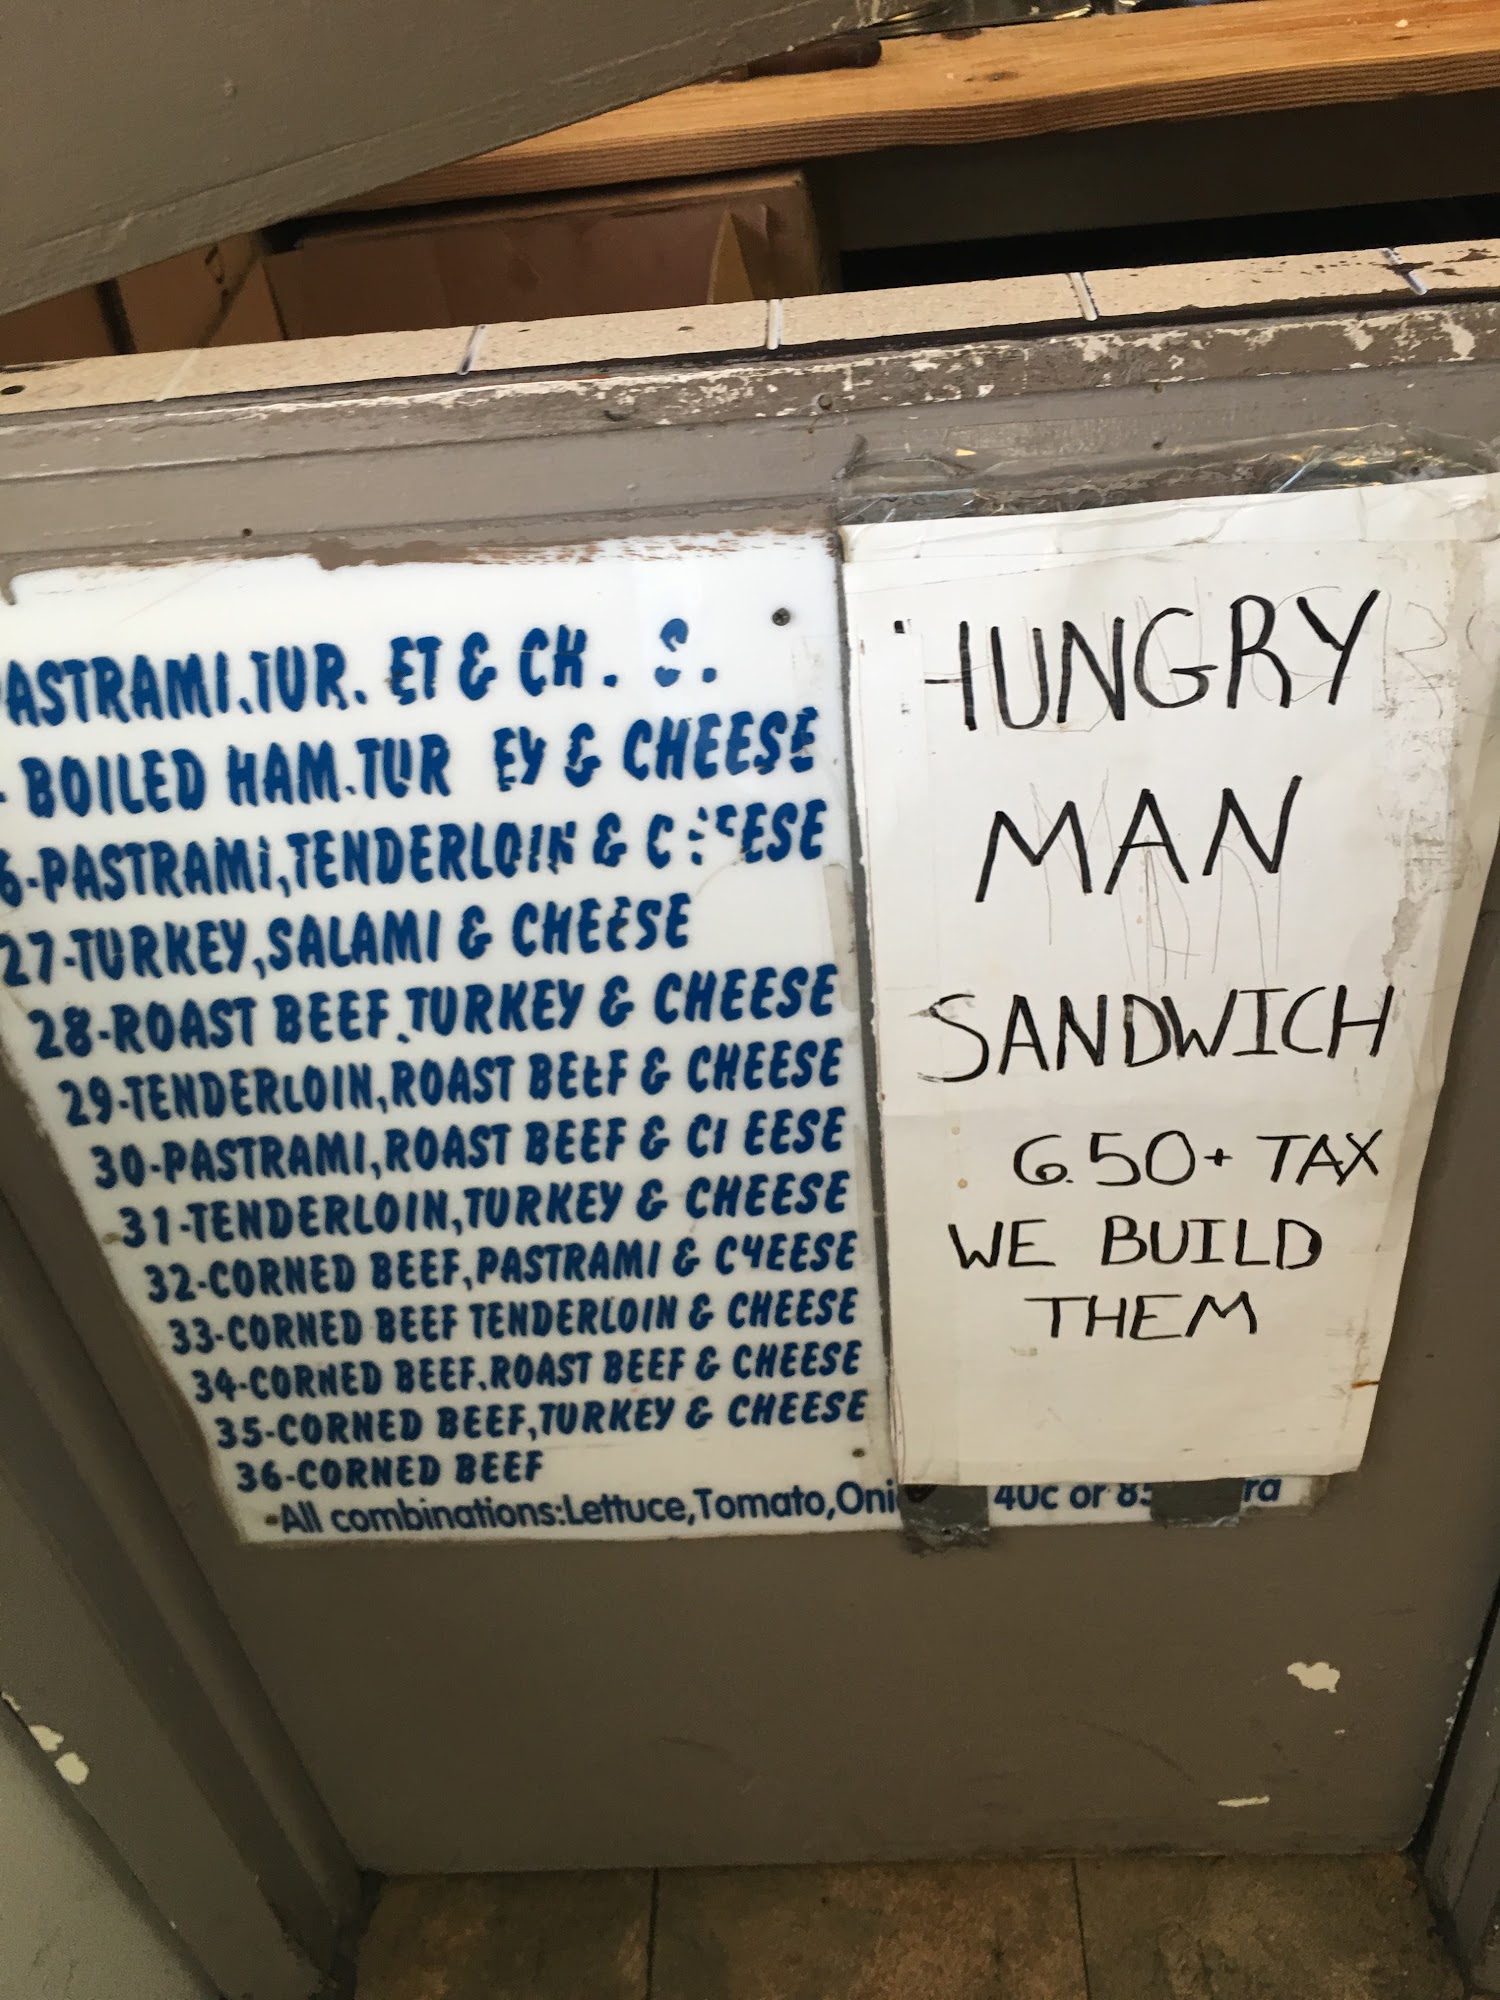 PASTRAMI,TUR. ET & CH . S.
- BOILED HAM.TUR EY & CHEESE
6-PASTRAMI,TENDERLOIN & C EESE
27-TURKEY,SALAMI & CHEESE
28-ROAST BEEF,TURKEY & CHEESE
29-TENDERLOIN,ROAST BEEF & CHEESE
30-PASTRAMI,ROAST BEEF & CHEESE
31-TENDERLOIN,TURKEY & CHEESE
32-CORNED BEEF,PASTRAMI & CHEESE
33-CORNED BEEF TENDERLOIN & CHEESE
34-CORNED BEEF,ROAST BEEF & CHEESE
35-CORNED BEEF,TURKEY & CHEESE
36-CORNED BEEF
All combinations:Lettuce,Tomato,Oni 40c or 85
HUNGRY
MAN
SANDWICH
6.50+ TAX
WE BUILD
THEM